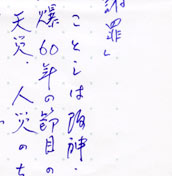 謝罪」
ことしは阪神・
爆60年の節目の
天災、人災のち